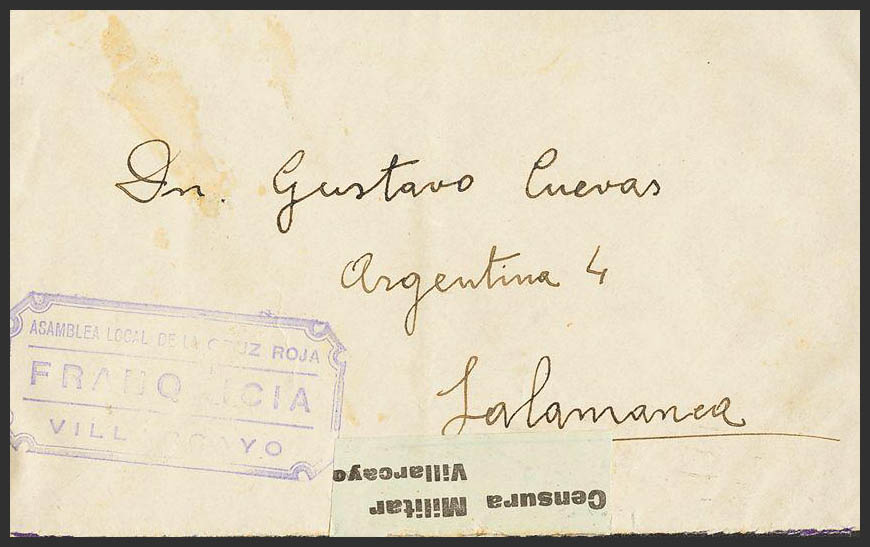 Dn. Gustavo Cuevas
Argentina 4
Salamanca
ASAMBLEA LOCAL DE LA CRUZ ROJA
FRANQUICIA
VILLARCAYO
Censura Militar
Villarcayo